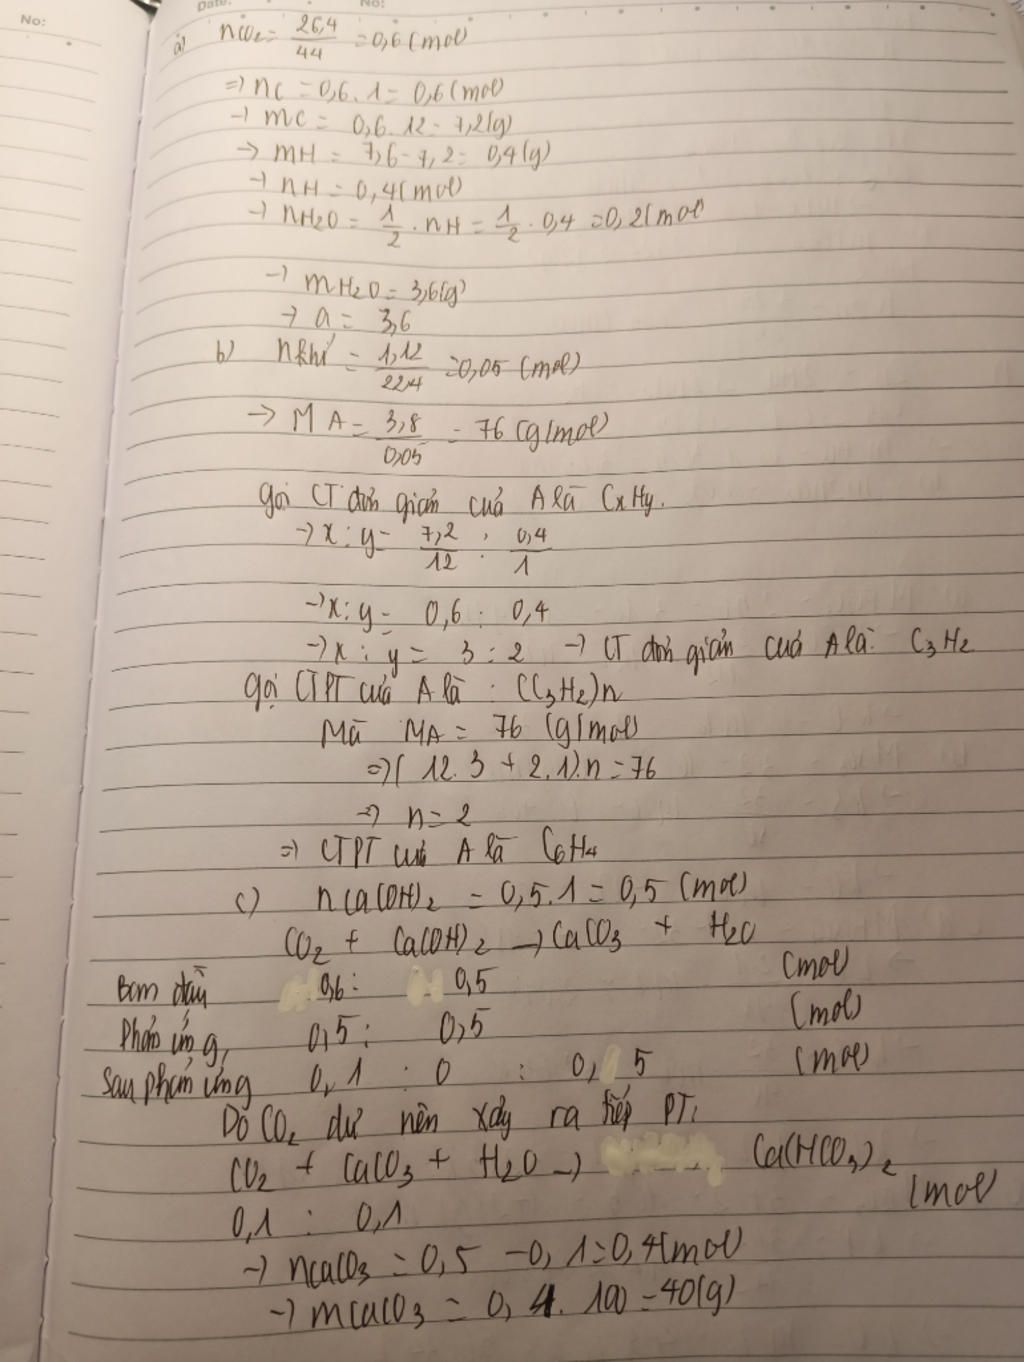 No:
Date:
No:
a) nCO₂ = 26,4/44 = 0,6 (mol)
=> nC = 0,6 . 1 = 0,6 (mol)
-> mC = 0,6 . 12 = 7,2 (g)
-> mH = 7,6 - 7,2 = 0,4 (g)
-> nH = 0,4 (mol)
-> nH₂O = 1/2 . nH = 1/2 . 0,4 = 0,2 (mol)
-> mH₂O = 3,6 (g)
-> a = 3,6
b) nkhí = 1,12/22,4 = 0,05 (mol)
-> MA = 3,8/0,05 = 76 (g/mol)
Gọi CT đơn giản của A là CxHy.
-> x : y = 7,2/12 : 0,4/1
-> x : y = 0,6 : 0,4
-> x : y = 3 : 2 -> CT đơn giản của A là: C₃H₂
Gọi CTPT của A là : (C₃H₂)n
Mà MA = 76 (g/mol)
=> (12.3 + 2.1).n = 76
=> n = 2
=> CTPT của A là C₆H₄
c) nCa(OH)₂ = 0,5.1 = 0,5 (mol)
CO₂ + Ca(OH)₂ -> CaCO₃ + H₂O
Ban đầu 0,6 : 0,5 (mol)
Phản ứng 0,5 : 0,5 (mol)
Sau phản ứng 0,1 : 0 : 0,5 (mol)
Do CO₂ dư nên xảy ra tiếp PT:
CO₂ + CaCO₃ + H₂O -> Ca(HCO₃)₂
0,1 : 0,1 (mol)
-> nCaCO₃ = 0,5 - 0,1 = 0,4 (mol)
-> mCaCO₃ = 0,4 . 100 = 40 (g)